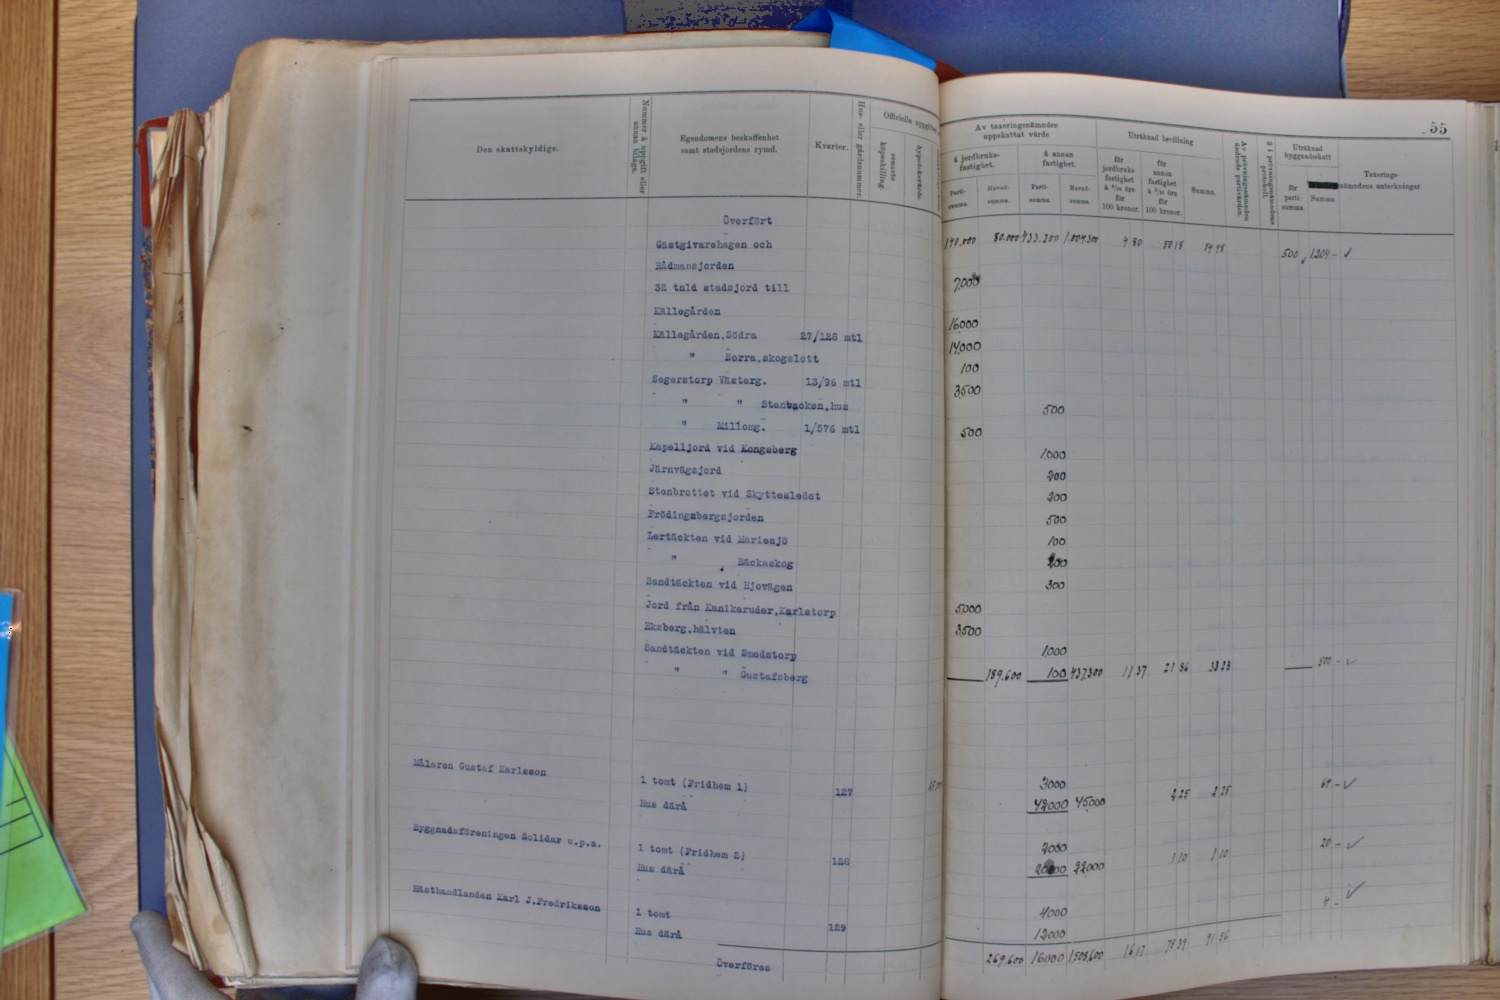 55
Den skattskyldige.
Nummer å uppgift eller annan bilaga.
Egendomens beskaffenhet
samt stadsjordens rymd.
Kvarter.
Hus- eller gårdsnummer.
Officiella
senaste köpeskilling.
hypoteksvärde.
Av taxeringsnämnden
uppskattat värde
å jordbruks-
fastighet.
å annan
fastighet.
Parti-
summa.
Huvud-
summa.
Parti-
summa.
Huvud-
summa.
Uträknad bevillning
för
jordbruks-
fastighet
för
100 kronor.
för
annan
fastighet
för
100 kronor.
Summa.
Av prövningsnämnden
Uträknad
för
parti-
summa.
Summa.
Taxerings-
nämndens anteckningar.
Överfört 140,000 80.000 433.200 1.004.300 4 80 50 18 54 98 500 1204 -
Gästgivarehagen och
Rådmansjorden 7,000
32 tnld stadsjord till
Källegården 16000
Källegården,Södra 27/128 mtl 14,000
" Norra,skogslott 100
Segerstorp Västerg. 13/96 mtl 3,500
" " Stenbacken,hus 500
" Millomg. 1/576 mtl 500
Kapelljord vid Kongsberg 1,000
Järnvägsjord 200
Stenbrottet vid Skyttesledet 200
Frödingsbergsjorden 500
Lertäckten vid Mariesjö 100
" Bäckaskog
Sandtäckten vid Hjovägen 300
Jord från Kanikeruder,Karlstorp 5,000
Eksberg,hälvten 3,500
Sandtäckten vid Smedstorp 1.000
" " Gustafsberg 189.600 100 437,300 11 37 21 86 33 23 500 -
Målaren Gustaf Karlsson
1 tomt (Fridhem 1) 127 3000
Hus därå 42000 45000 2 25 2 25 64 -
Byggnadsföreningen Solidar u.p.a.
1 tomt (Fridhem 2) 128 2000
Hus därå 20000 22000 1 10 1 10 20 -
Hästhandlanden Karl J.Fredriksson
1 tomt 129 4000 4 -
Hus därå 12000
Överföres 269.600 16000 1,508,600 16 17 75 39 91 56